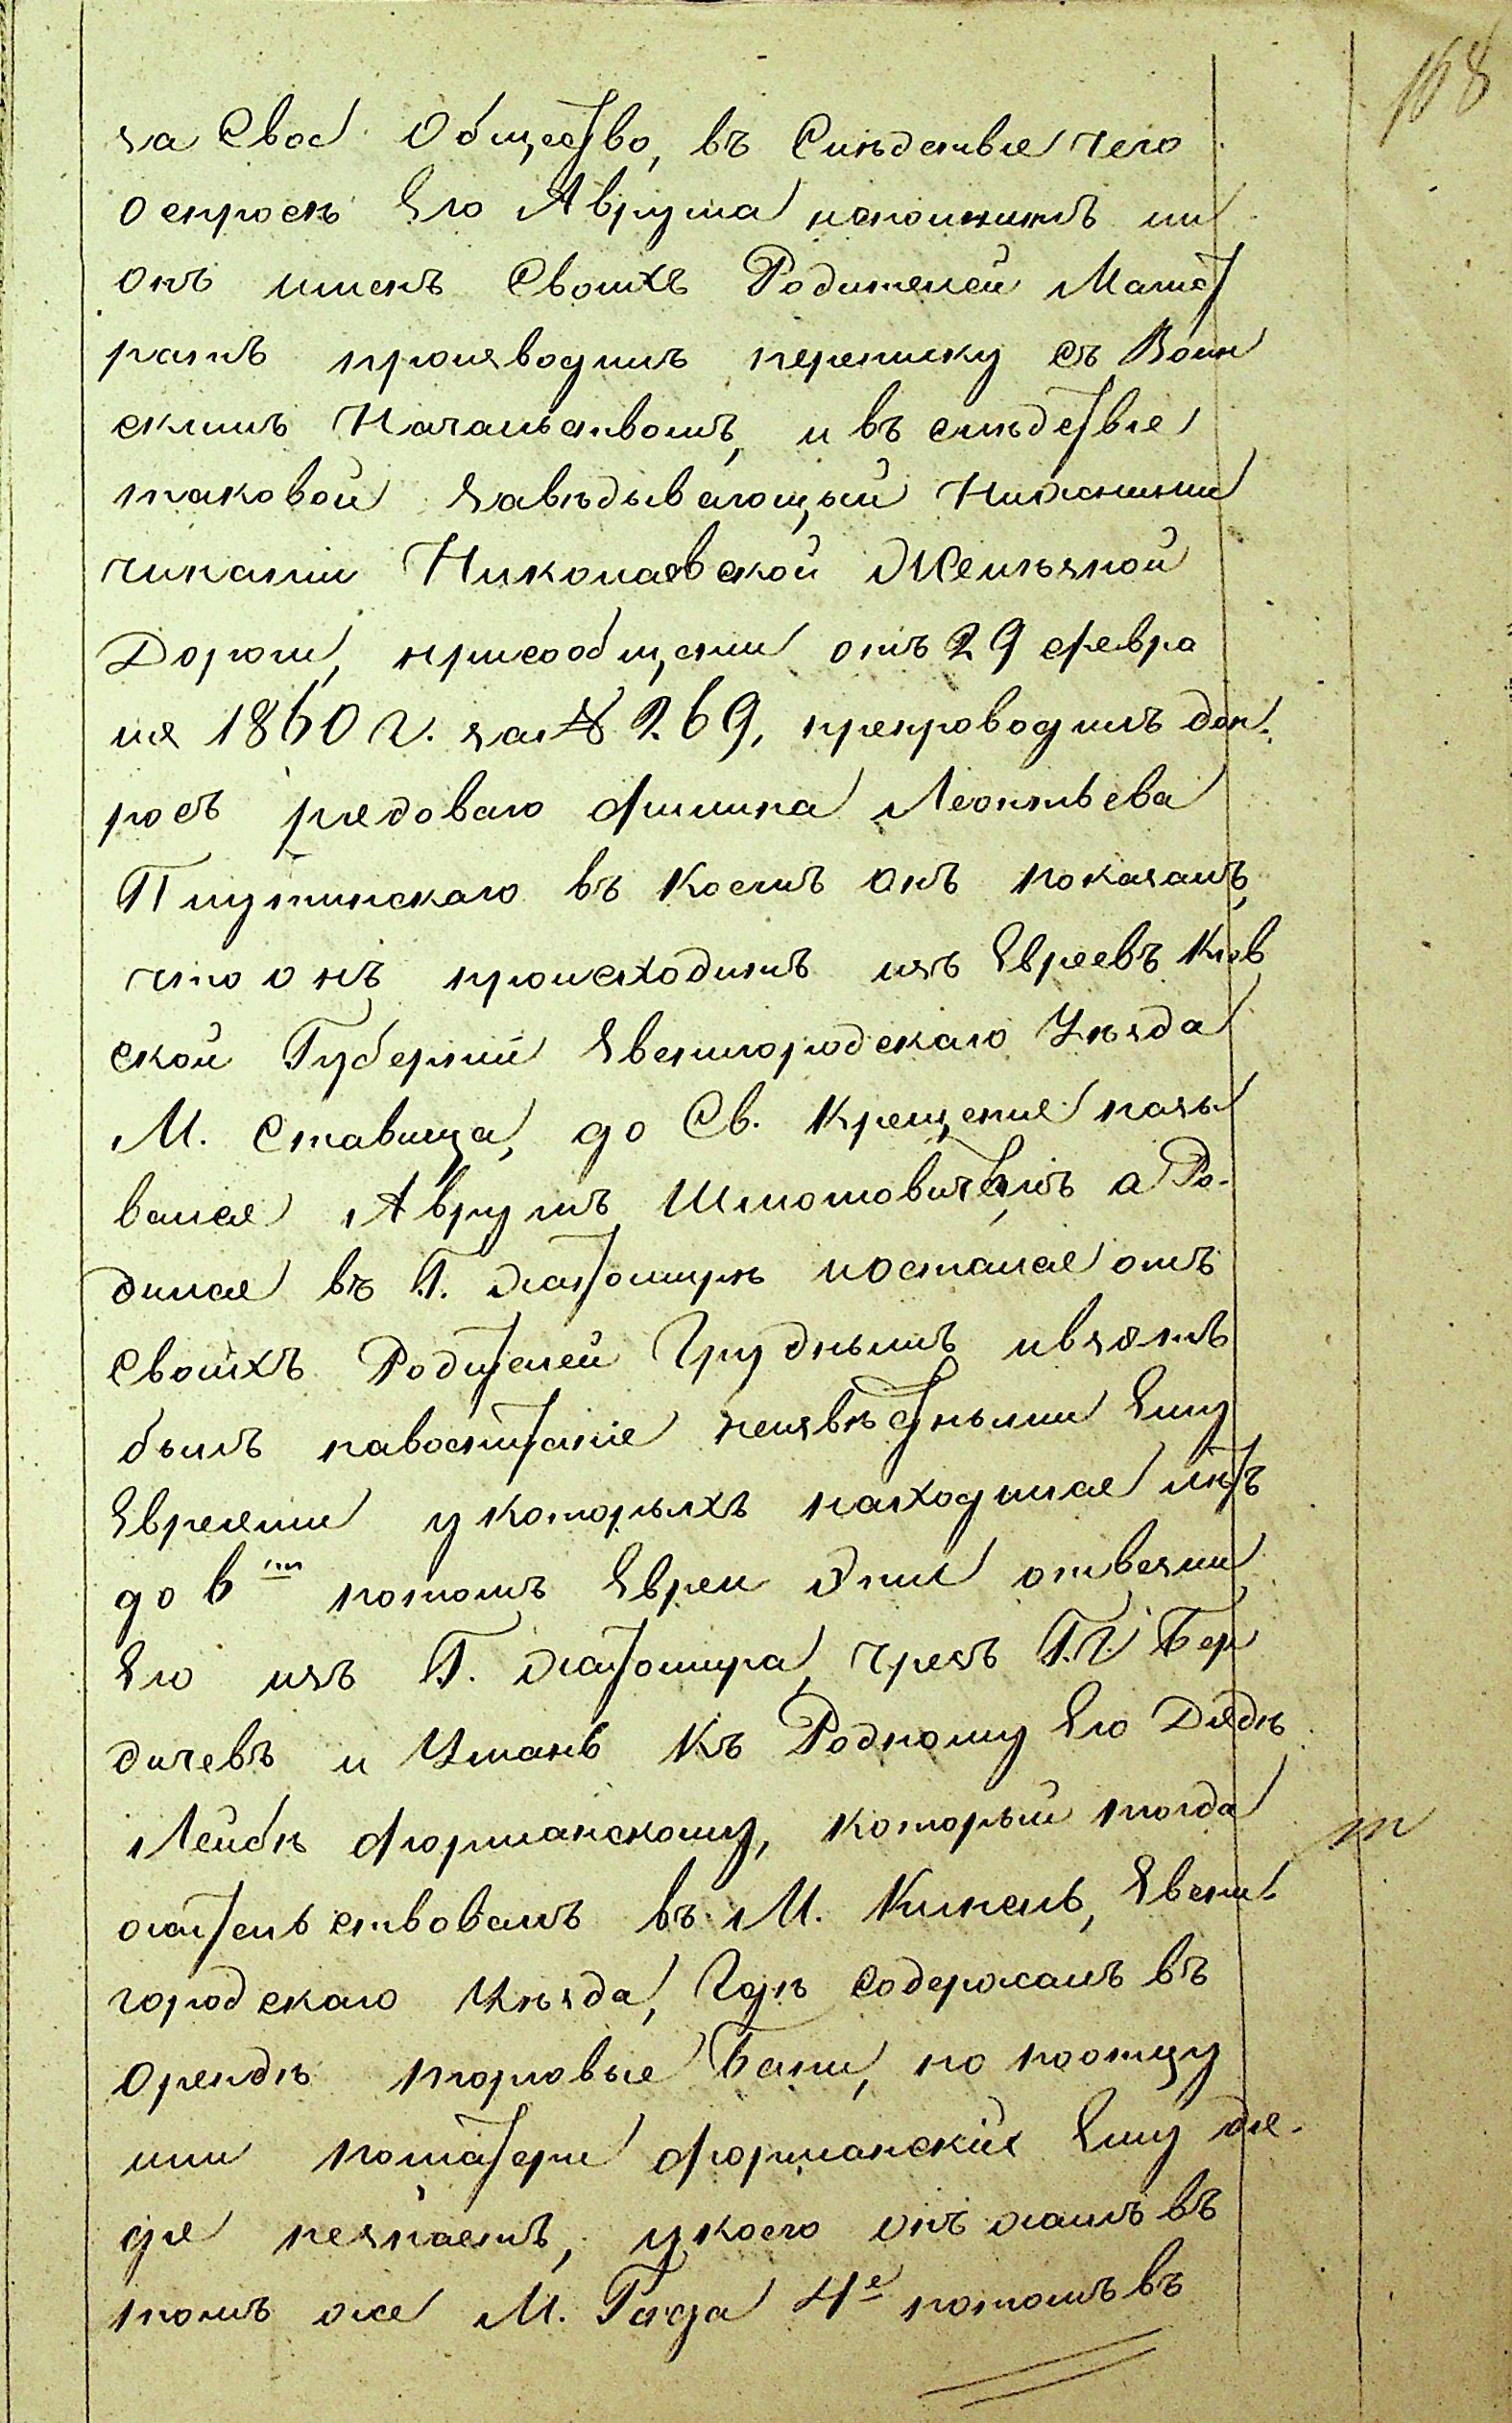 168
за Свое Общество, въ Слѣдствіе чего
о спросѣ Его Аврума непомнитъ ли
онъ именъ Своихъ Родителей Магист
ратъ производилъ переписку съ Воин
скимъ Начальствомъ, и въ слѣдствіе
таковой Завѣдывающій Нижними
чинами Николаевской Желѣзной
Дороги, присообщеніи отъ 29 Февра
ля 1860 г. за № 269, препроводилъ доп.
росъ рядоваго Филипа Леонтьева
въ коемъ онъ показалъ,
что онъ происходитъ изъ Евреевъ Кіев
ской Губерніи Звенигородскаго Уѣзда
М. Ставища, до Св. Крещенія назы
вался Аврумъ Шмотовичемъ а Ро-
дился въ Г. Житомирѣ иостался отъ
своихъ Родителей Груднымъ ивзятъ
былъ навоспитаніе неизвѣстными Ему
Евреями укоторыхъ находился лѣтъ
до 6ти потомъ Евреи Эти отвезли
Его изъ Г. Житомира, чрезъ Г.Г. Бер
дичевъ и Умань Къ Родному Его Дядѣ
Лейбѣ Фурманскому, который тогда
т
жительствовалъ въ М. Кинель, Звени
городскаго Уѣзда, Гдѣ содержалъ въ
Орендѣ торговые Бани, но поотцу
или поматери Фурманскій Ему дя-
дя незнаетъ, укоего онъ жилъ въ
томъ же М. Года 4е потомъ въ